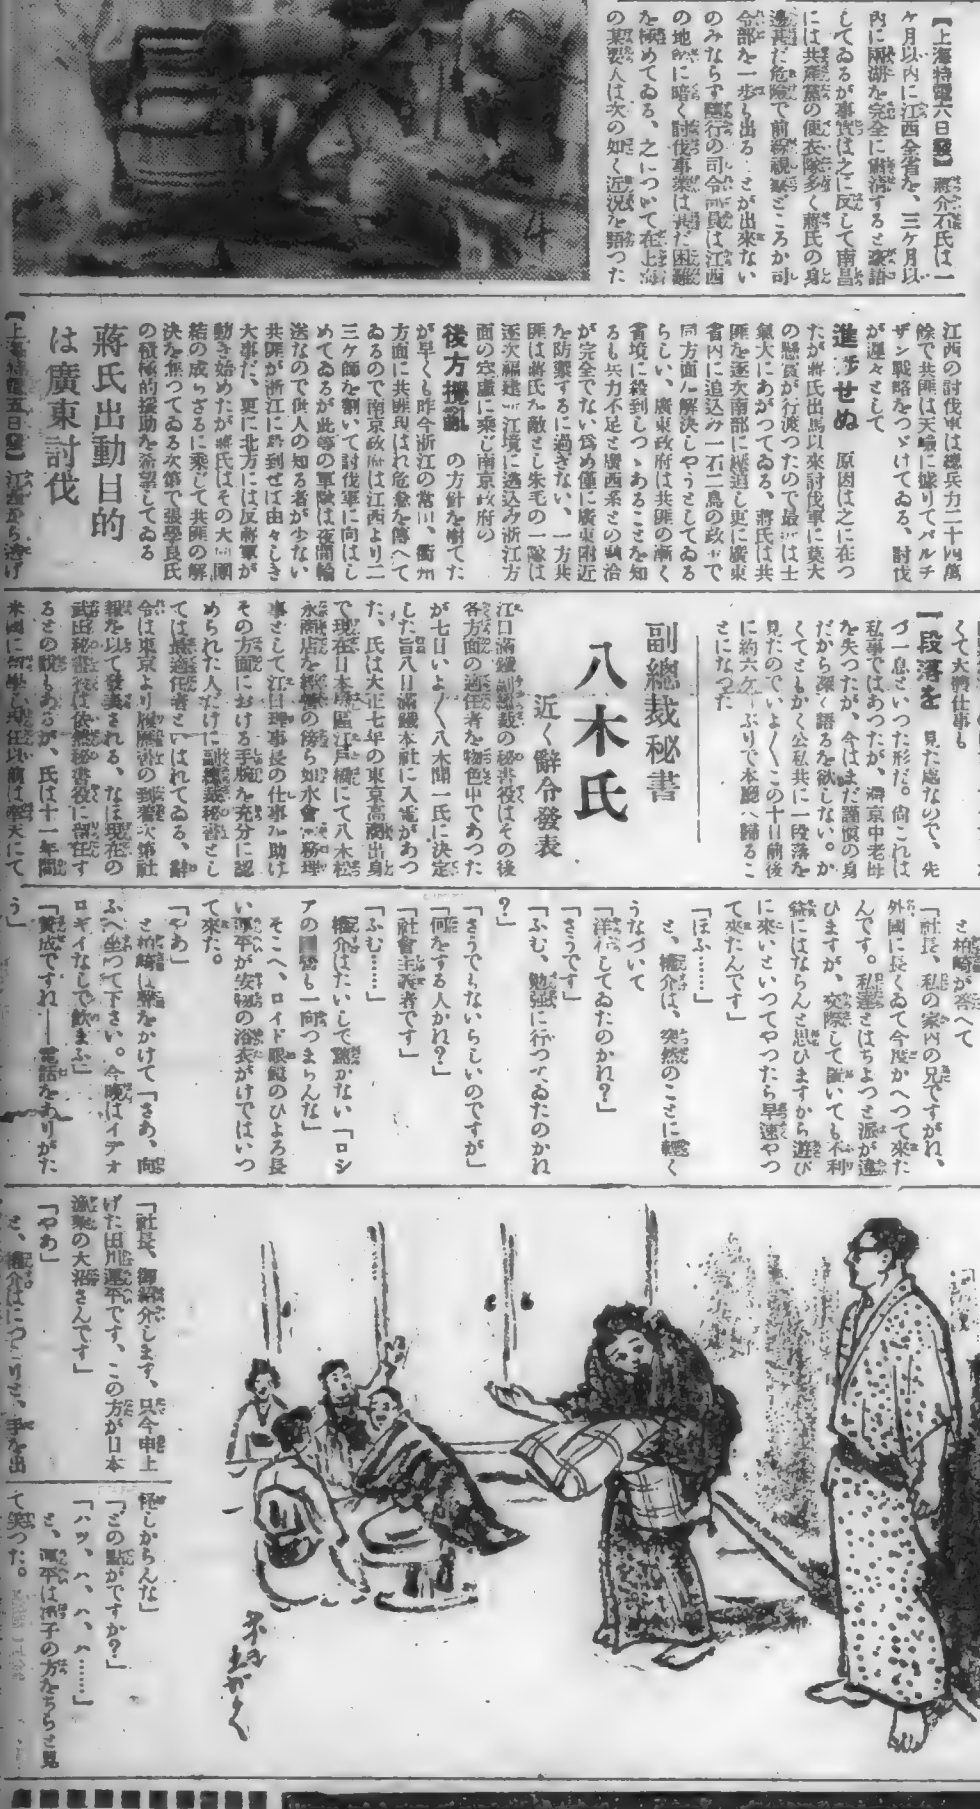 【上海特電六日發】蔣介石氏は一
ヶ月以内に江西全省を、三ヶ月以
内に兩湖を完全に肅清すると豪語
してゐるが事實は之に反して南昌
には共產黨の便衣隊多く蔣氏の身
邊甚だ危險で前線視察どころか司
令部を一歩も出る ことが出來ない
のみならず隨行の司令部員は江西
の地理に暗く討伐事業は甚だ困難
を極めてゐる、之について在上海
の某要人は次の如く近況を語つた
江西の討伐軍は總兵力二十四萬
餘で共匪は天險に據りてパルチ
ザン戰略をつゞけてゐる、討伐
が遲々として
進歩せぬ 原因は之に在つ
たが蔣氏出馬以來討伐軍に莫大
の懸賞が行渡つたので最近は士
氣大にあがつてゐる、蔣氏は共
匪を逐次南部に壓迫し更に廣東
省内に追込み一石二鳥の政策で
同方面を解決しやうとしてゐる
らしい、廣東政府は共匪の漸く
省境に殺到しつゝあることを知
るも兵力不足と廣西系との融洽
が完全でない爲め僅に廣東附近
を防禦するに過ぎない、一方共
匪は蔣氏を敵とし朱毛の一隊は
逐次福建 江境に逃込み浙江方
面の空虛に乘じ南京政府の
後方攪亂 の方針を樹てた
が早くも昨今浙江の常山、衢州
方面に共匪現はれ危急を傳へて
ゐるので南京政府は江西より二
三ヶ師を割いて討伐軍に向はし
めてゐるが此等の軍隊は夜間輸
送なので世人の知る者が少ない
共匪が浙江に殺到せば由々しき
大事だ、更に北方には反蔣軍が
動き始めたが蔣氏はその大同團
結の成らざるに乘じて共匪の解
決を焦つてゐる次第で張學良氏
の積極的援助を希望してゐる
蔣氏出動目的
は廣東討伐
【上海特電五日發】江西から逃げ
くて大將仕事も
一段落を 見た處なので、先
づ一息といつた形だ。尙これは
私事ではあつたが、滯京中老母
を失つたが、今はまだ謹愼の身
だから深く語るを欲しない。か
くてともかく公私共に一段落を
見たので、いよ〱この十日前後
に約六ケ月ぶりで本廳へ歸るこ
とになつた
副總裁秘書
八木氏
近く辭令發表
江口滿鐵副總裁の秘書役はその後
各方面の適任者を物色中であつた
が七日いよ〱八木聞一氏に決定
した旨八日滿鐵本社に入電があつ
た、氏は大正七年の東京高商出身
で現在日本橋區江戸橋にて八木松
永商店を經營の傍ら如水會常務理
事として江口理事長の仕事を助け
その方面における手腕を充分に認
められた人だけに副總裁秘書とし
ては最適任者といはれてゐる、辭
令は東京より履歷書の到着次第社
報を以て發表される、なほ現在の
武田秘書役は依然秘書役に留任す
るとの說もあるが、氏は十一年間
米國に留學し現任以前は奉天にて
と柏崎が答へて
「社長、私の家内の兄ですがね、
外國に長くゐて今度かへつて來た
んです。私達とはちよつと派が違
ひますが、交際して置いても不利
益にはならんと思ひますから遊び
に來いといつてやつたら早速やつ
て來たんです」
「ほふ……」
と、權介は、突然のことに輕く
うなづいて
「洋行してゐたのかね?」
「さうです」
「ふむ、勉強に行つてゐたのかね
?」
「さうでもないらしいのですが」
「何をする人かね?」
「社會主義者です」
「ふむ……」
權介はたいして驚かない「ロシ
アの　　も一向つまらんな」
そこへ、ロイド眼鏡のひよろ長
い運平が安物の浴衣がけではいつ
て來た。
「やあ」
と柏崎は聲をかけて「さあ、向
ふへ坐つて下さい。今晩はイデオ
ロギイなしで飲まふ」
「贊成ですね——電話をありがた
う」
「社長、御紹介します、只今申上
げた田川運平です、この方が日本
漁業の大沼さんです」
「やあ」
と、權介はにつこりと、手を出
怪しからんな」
「どの點がですか?」
「ハッ、ハ、ハ、ハ……」
と、運平は 子の方をちらと見
て笑つた。